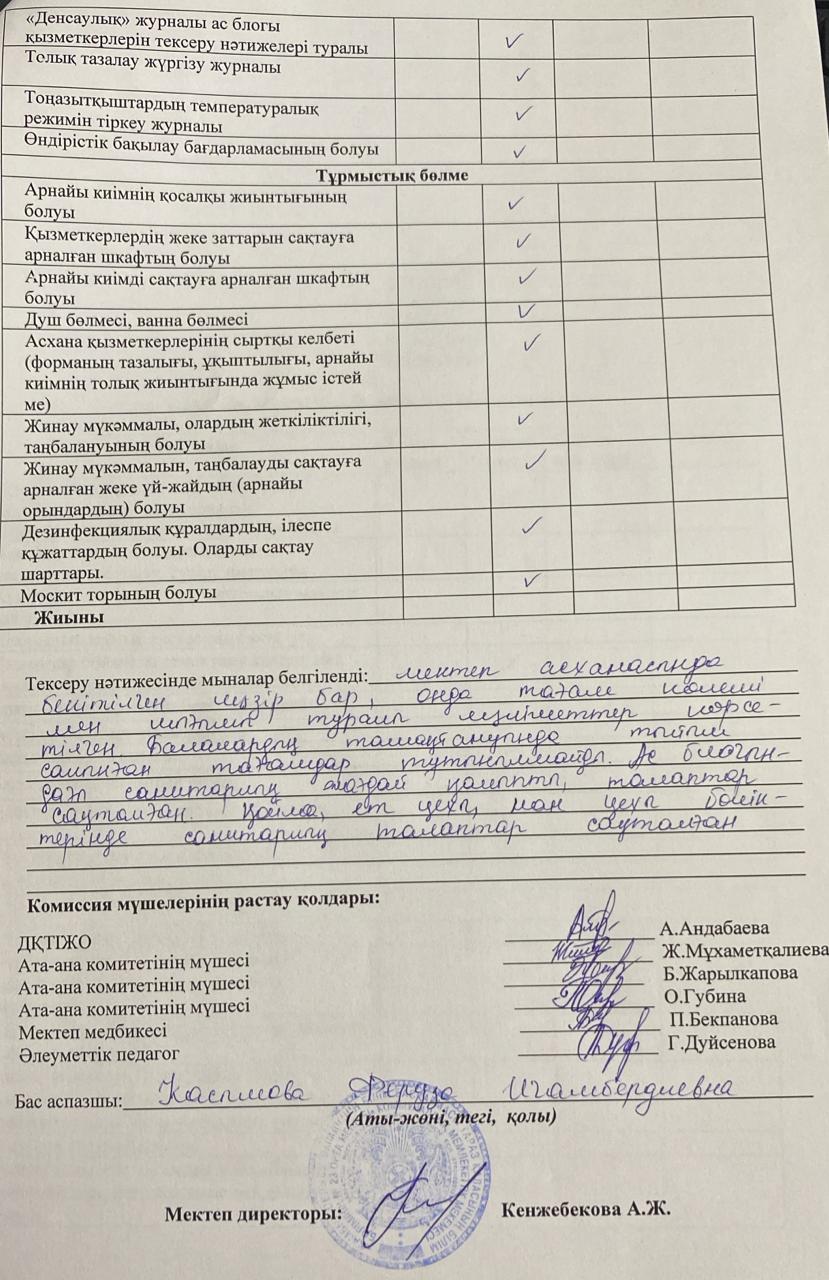 «Денсаулық» журналы ас блогы
қызметкерлерін тексеру нәтижелері туралы
Толық тазалау жүргізу журналы
Тоңазытқыштардың температуралық
режимін тіркеу журналы
Өндірістік бақылау бағдарламасының болуы
Тұрмыстық бөлме
Арнайы киімнің қосалқы жиынтығының
болуы
Қызметкерлердің жеке заттарын сақтауға
арналған шкафтың болуы
Арнайы киімді сақтауға арналған шкафтың
болуы
Душ бөлмесі, ванна бөлмесі
Асхана қызметкерлерінің сыртқы келбеті
(форманың тазалығы, ұқыптылығы, арнайы
киімнің толық жиынтығында жұмыс істей
ме)
Жинау мүкәммалы, олардың жеткіліктілігі,
таңбалануының болуы
Жинау мүкәммалын, таңбалауды сақтауға
арналған жеке үй-жайдың (арнайы
орындардың) болуы
Дезинфекциялық құралдардың, ілеспе
құжаттардың болуы. Оларды сақтау
шарттары.
Москит торының болуы
Жиыны
Тексеру нәтижесінде мыналар белгіленді: мектеп асханасында
бекітілген мәзір бар, онда тағам көлемі
мен туралы мәліметтер көрсе-
тілген Балалардың тамақтануында тыйым
салынған тағамдар тұтынылмайды. Ас блогын-
дағы санитарлық жағдай қалыпты, талаптар
сақталған. Қойма, ет цехы, нан цехы бөлік-
терінде санитарлық талаптар сақталған
Комиссия мүшелерінің растау қолдары:
ДҚТІЖО А.Андабаева
Ата-ана комитетінің мүшесі Ж.Мұхаметқалиева
Ата-ана комитетінің мүшесі Б.Жарылкапова
Ата-ана комитетінің мүшесі О.Губина
Мектеп медбикесі П.Бекпанова
Әлеуметтік педагог Г.Дуйсенова
Бас аспазшы: Касымова Феруза Игамбердиевна
(Аты-жөні, тегі, қолы)
Мектеп директоры: Кенжебекова А.Ж.